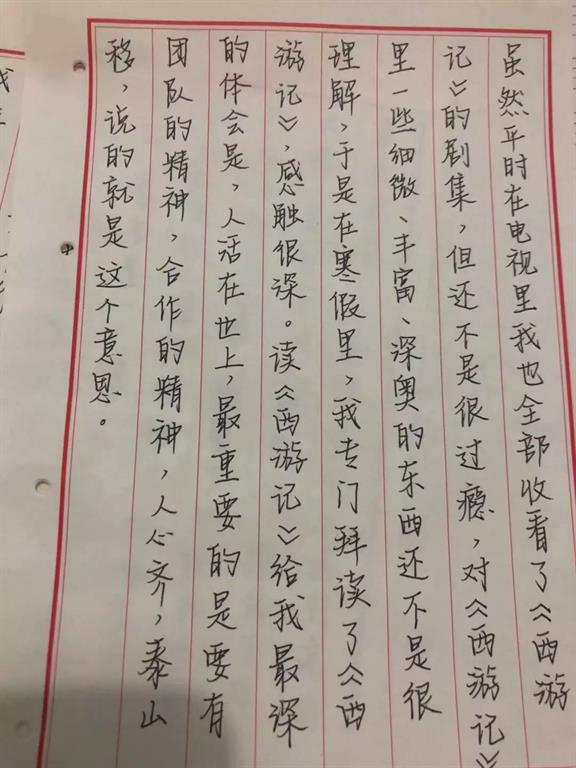 虽然平时在电视里我也全部收看了《西游
记》的剧集，但还不是很过瘾，对《西游记》
里一些细微、丰富、深奥的东西还不是很
理解，于是在寒假里，我专门拜读了《西
游记》，感触很深。读《西游记》给我最深
的体会是，人活在世上，最重要的是要有
团队的精神，合作的精神，人心齐，泰山
移，说的就是这个意思。